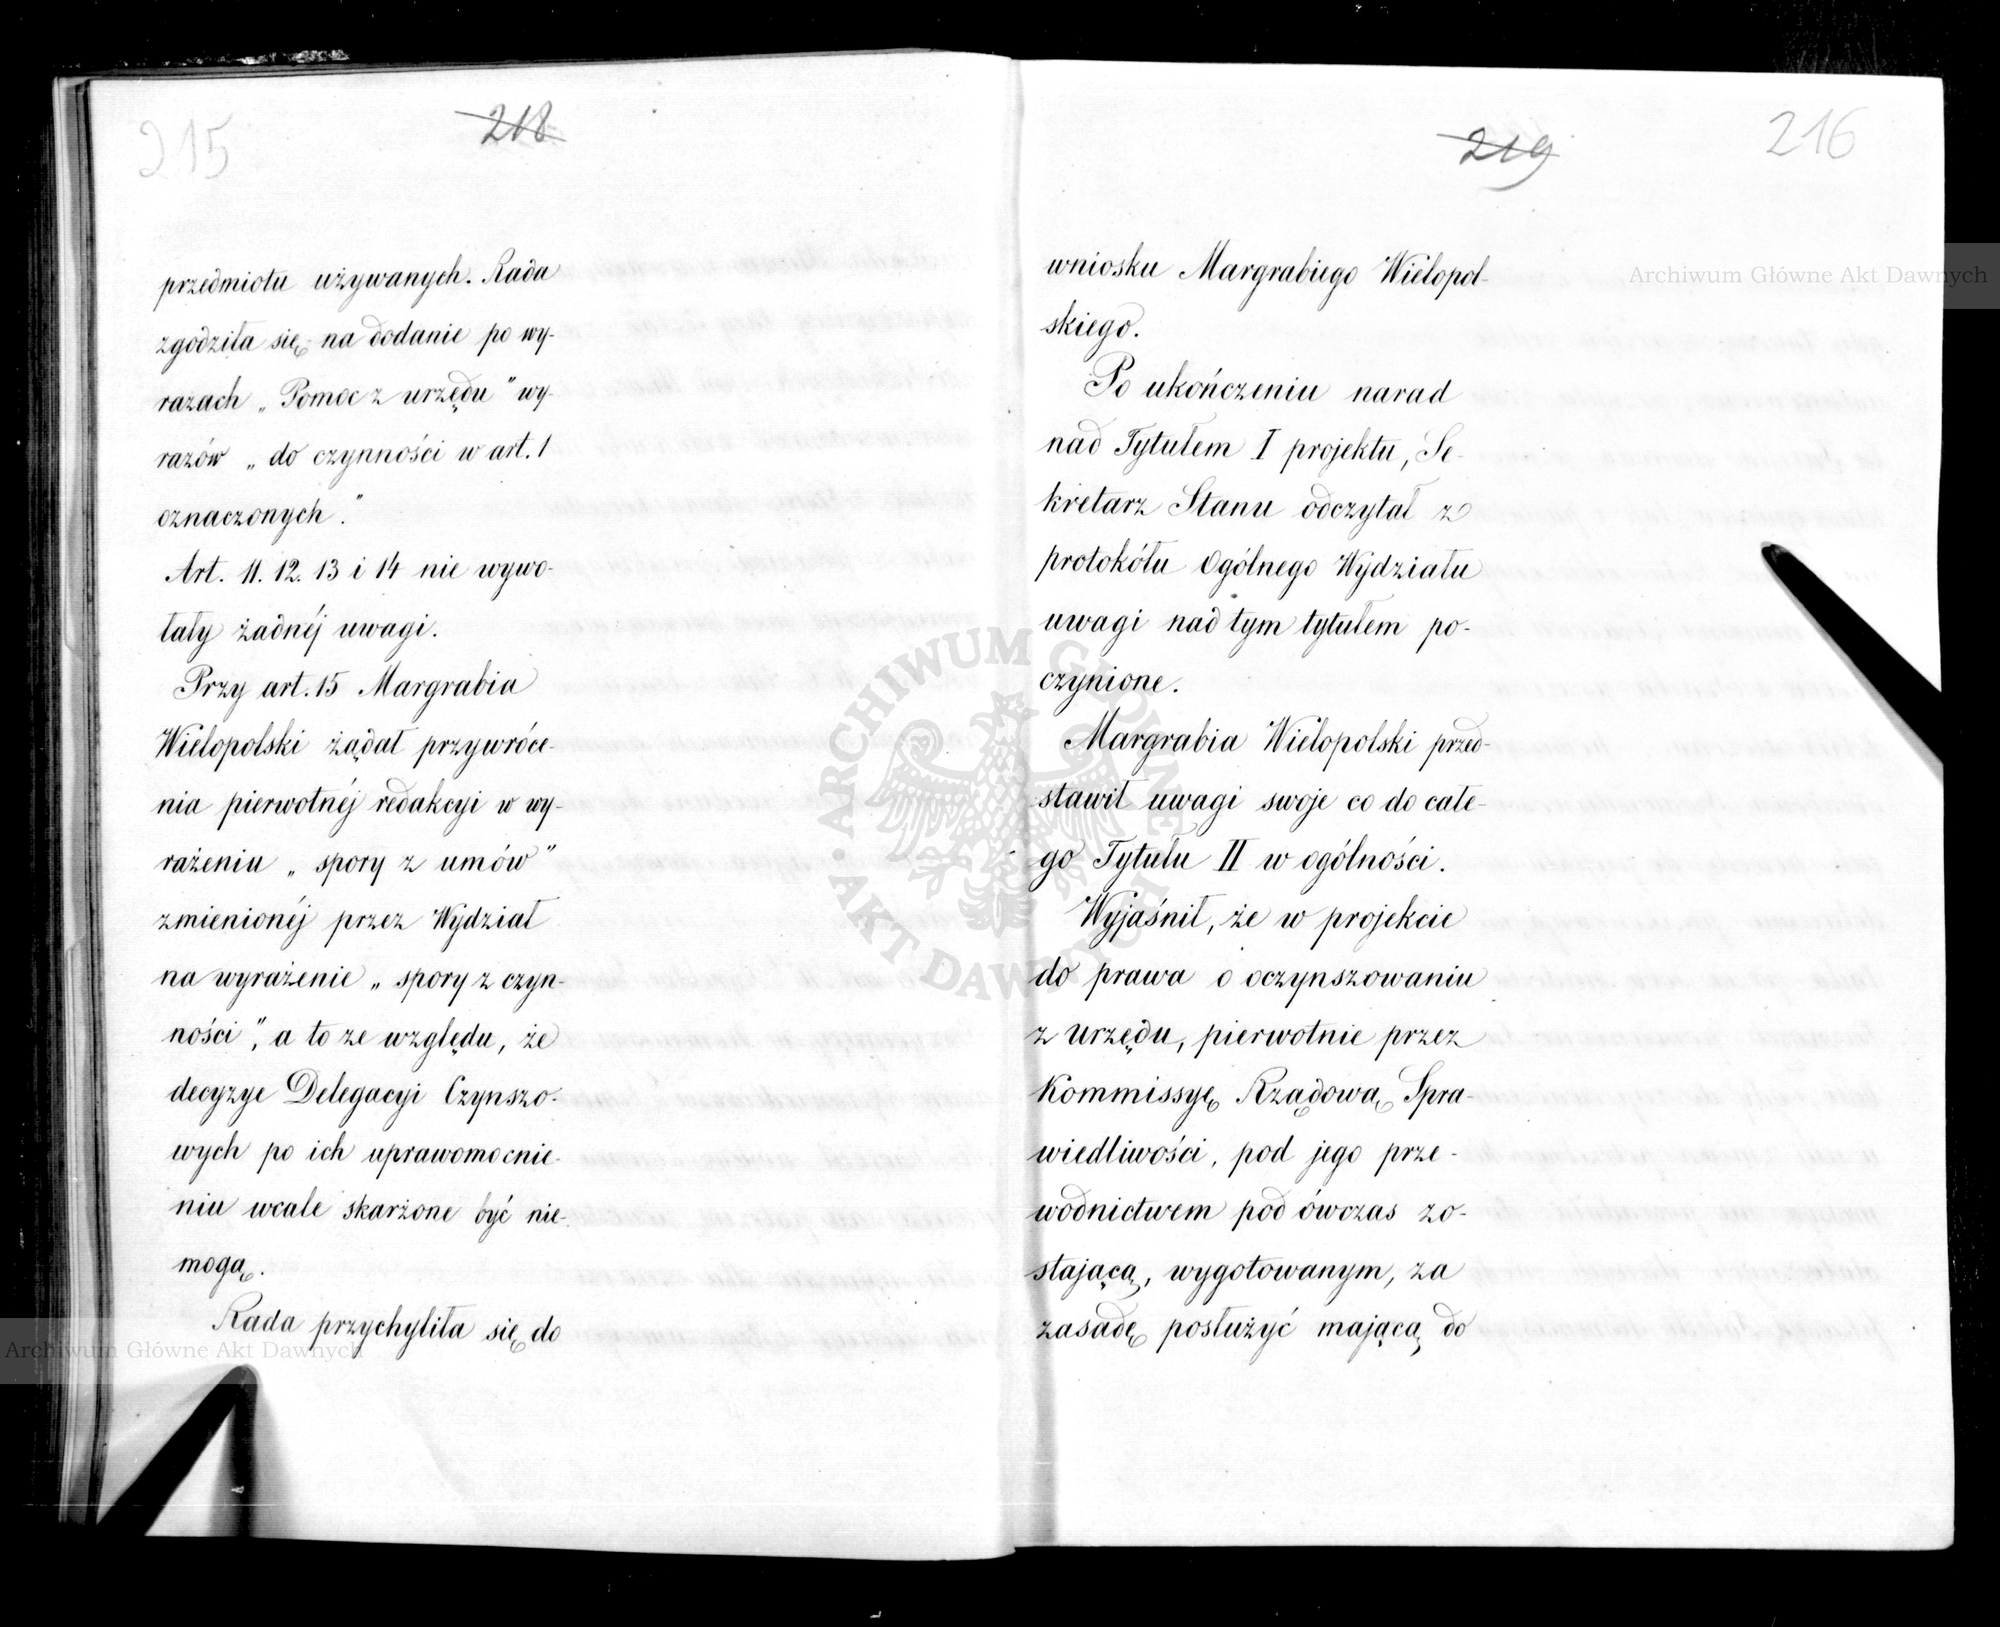 215
218
przedmiotu używanych. Rada
zgodziła się na dodanie po wy-
razach „Pomoc z urzędu" wy-
razów „do czynności w art. 1
oznaczonych."
Art. 11. 12. 13 i 14 nie wywo-
łały żadnéj uwagi.
Przy art. 15 Margrabia
Wielopolski żądał przywróce-
nia pierwotnéj redakcyi w wy-
rażeniu „spory z umów"
zmienionéj przez Wydział
na wyrażenie „spory z czyn-
ności", a to ze względu, że
decyzye Delegacyi Czynszo-
wych po ich uprawomocnie-
niu wcale skarżone być nie-
mogą.
Rada przychyliła się do
219
216
wniosku Margrabiego Wielopol-
skiego.
Po ukończeniu narad
nad Tytułem I projektu, Se-
kretarz Stanu odczytał z
protokółu Ogólnego Wydziału
uwagi nad tym tytułem po-
czynione.
Margrabia Wielopolski przed-
stawił uwagi swoje co do całe-
go Tytułu II w ogólności.
Wyjaśnił, że w projekcie
do prawa o oczynszowaniu
z urzędu, pierwotnie przez
Kommissyę Rządową Spra-
wiedliwości, pod jego prze-
wodnictwem pod ówczas zo-
stającą, wygotowanym, za
zasadę posłużyć mającą do
Archiwum Główne Akt Dawnych
ARCHIWUM GŁÓWNE AKT DAWNYCH
Archiwum Główne Akt Dawnych